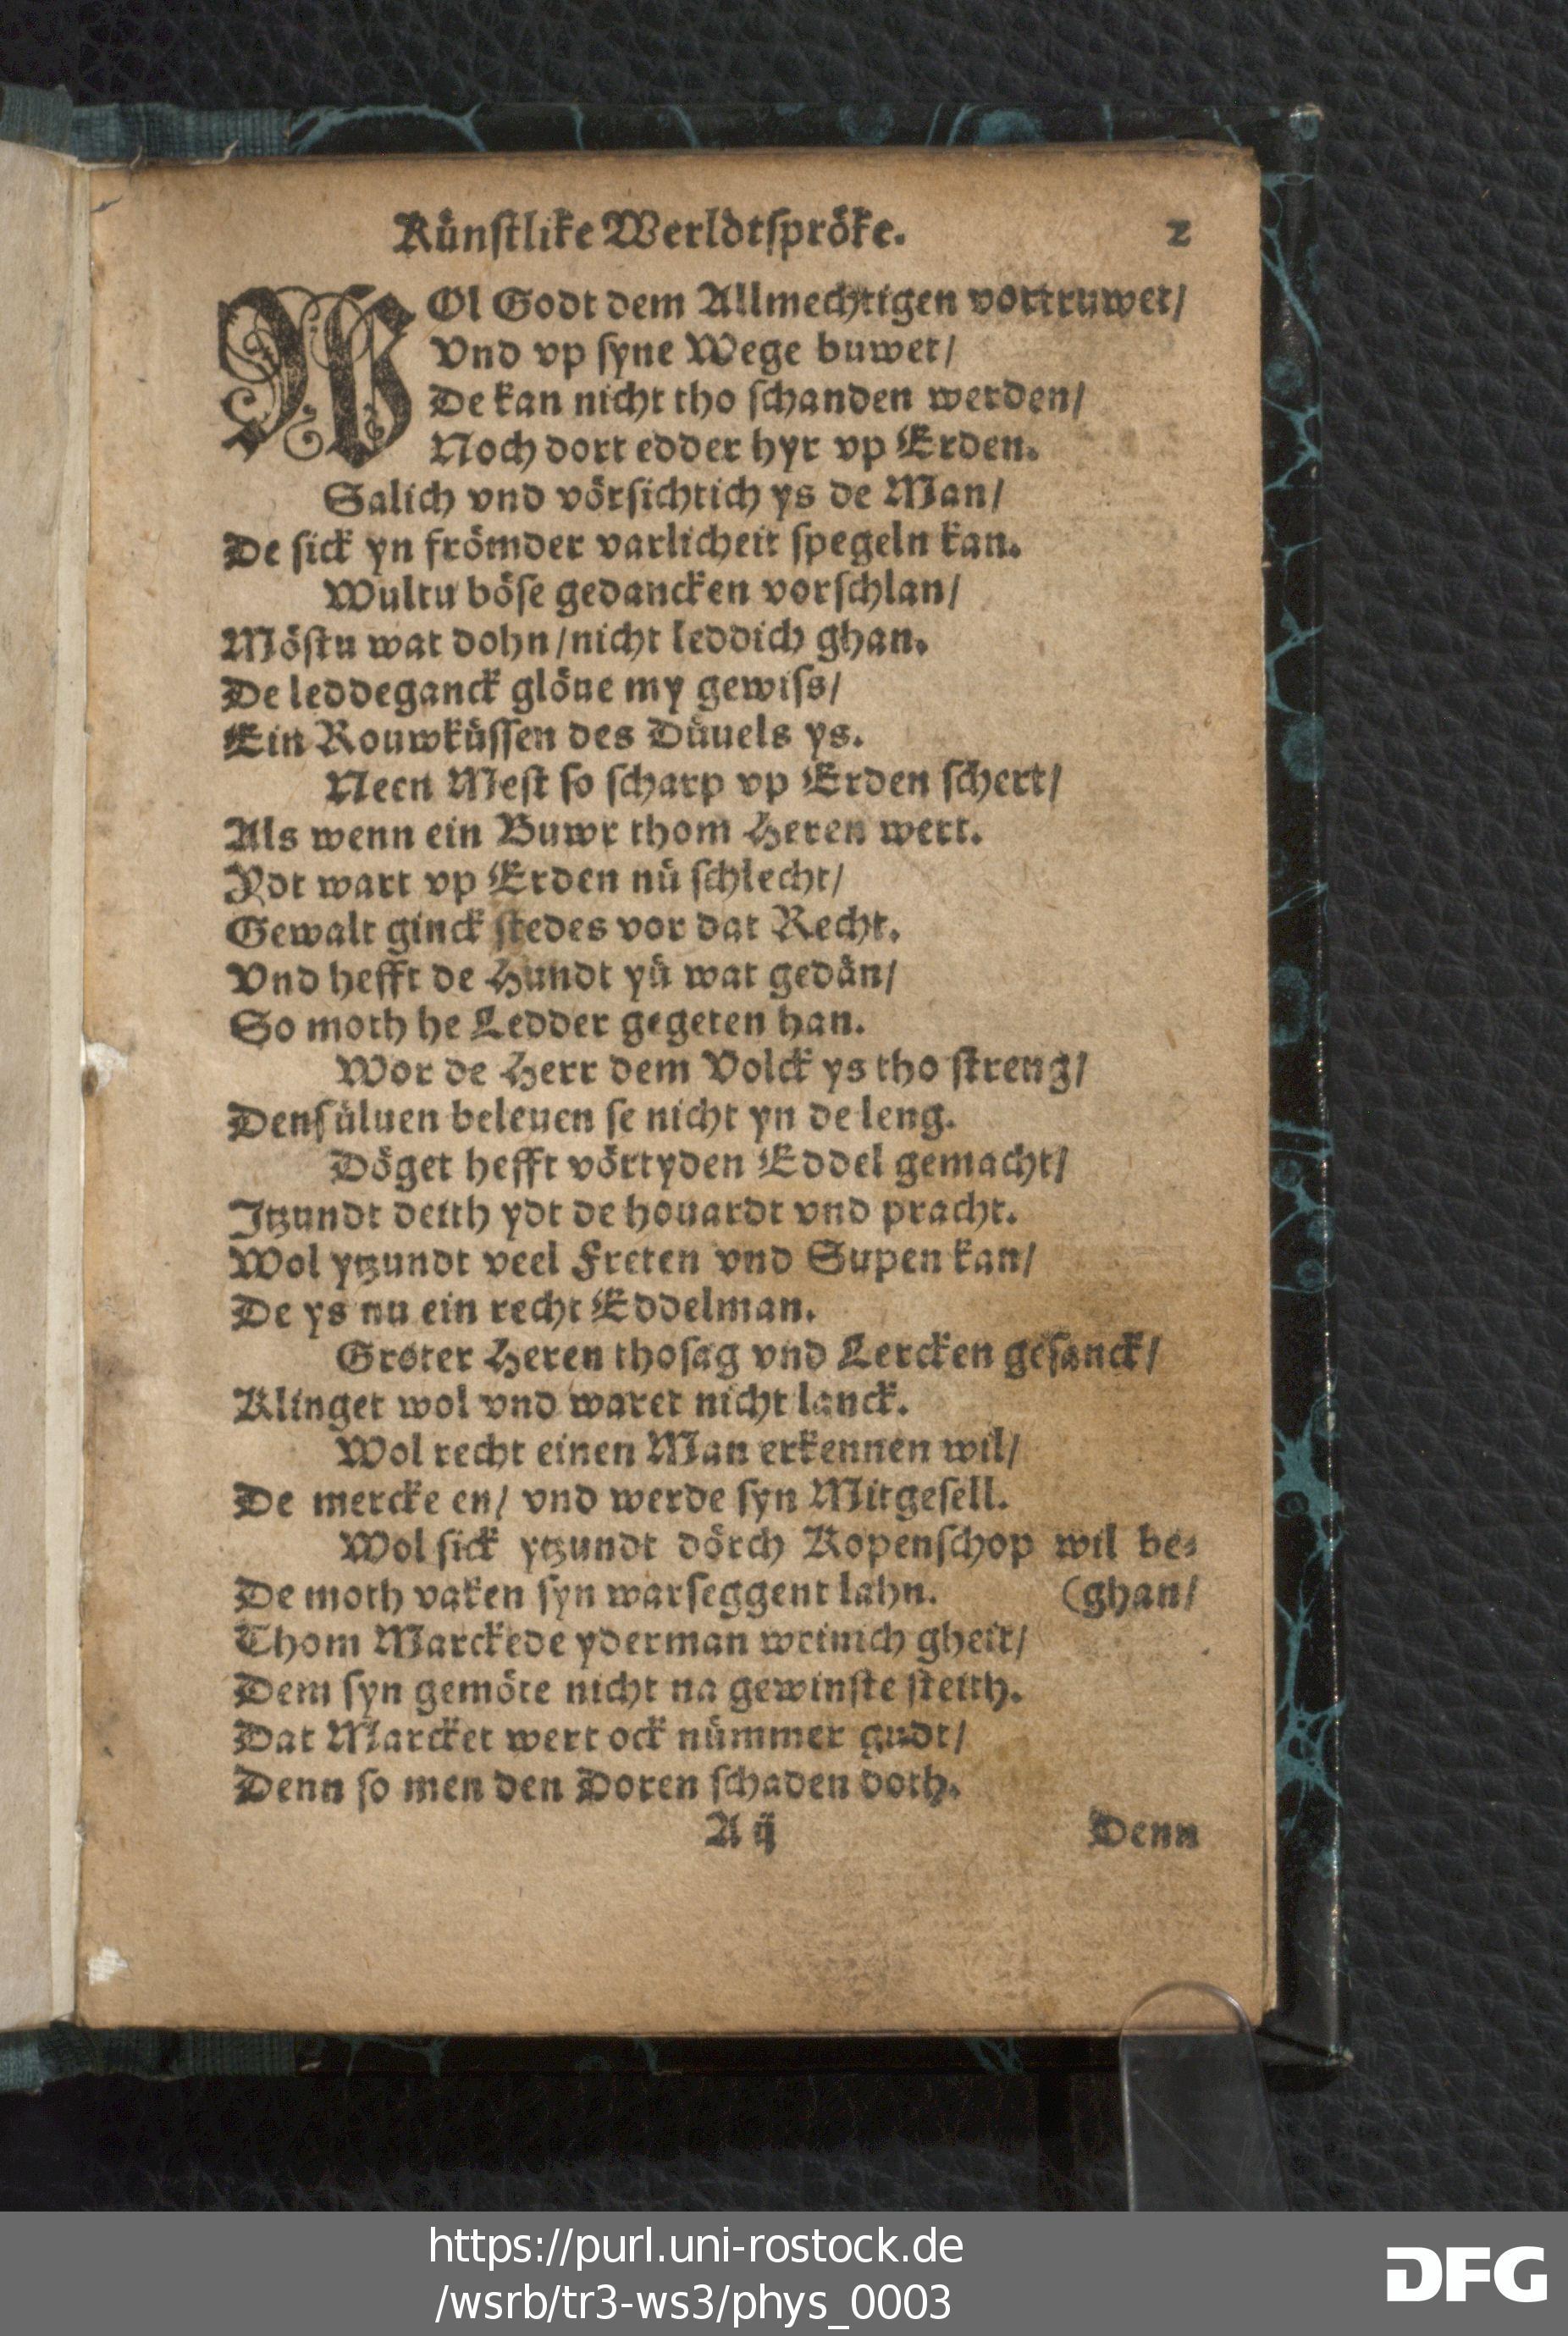 Künstlike Werldtspröke. 2
WOl Godt dem Allmechtigen vortruwet/
Vnd vp syne Wege buwet/
De kan nicht tho schanden werden/
Noch dort edder hyr vp Erden.
Salich vnd vörsichtich ys de Man/
De sick yn frömder varlicheit spegeln kan.
Wultu böse gedancken vorschlan/
Möstu wat dohn/nicht leddich ghan.
De leddeganck glöue my gewiss/
Ein Rouwküssen des Düuels ys.
Neen Mest so scharp vp Erden schert/
Als wenn ein Buwr thom Heren wert.
Ydt wart vp Erden nü schlecht/
Gewalt ginck stedes vor dat Recht.
Vnd hefft de Hundt yü wat gedän/
So moth he Ledder gegeten han.
Wor de Herr dem Volck ys tho streng/
Densüluen beleuen se nicht yn de leng.
Döget hefft vörtyden Eddel gemacht/
Itzundt deith ydt de houardt vnd pracht.
Wol ytzundt veel Freten vnd Supen kan/
De ys nu ein recht Eddelman.
Groter Heren thosag vnd Lercken gesanck/
Klinget wol vnd waret nicht lanck.
Wol recht einen Man erkennen wil/
De mercke en/ vnd werde syn Mitgesell.
Wol sick ytzundt dörch Kopenschop wil be-
De moth vaken syn warseggent lahn. (ghan/
Thom Marckede yderman weinich gheit/
Dem syn gemöte nicht na gewinste steith.
Dat Marcket wert ock nümmer gudt/
Denn so men den Doren schaden doth.
A ij Denn
https://purl.uni-rostock.de
/wsrb/tr3-ws3/phys_0003
DFG